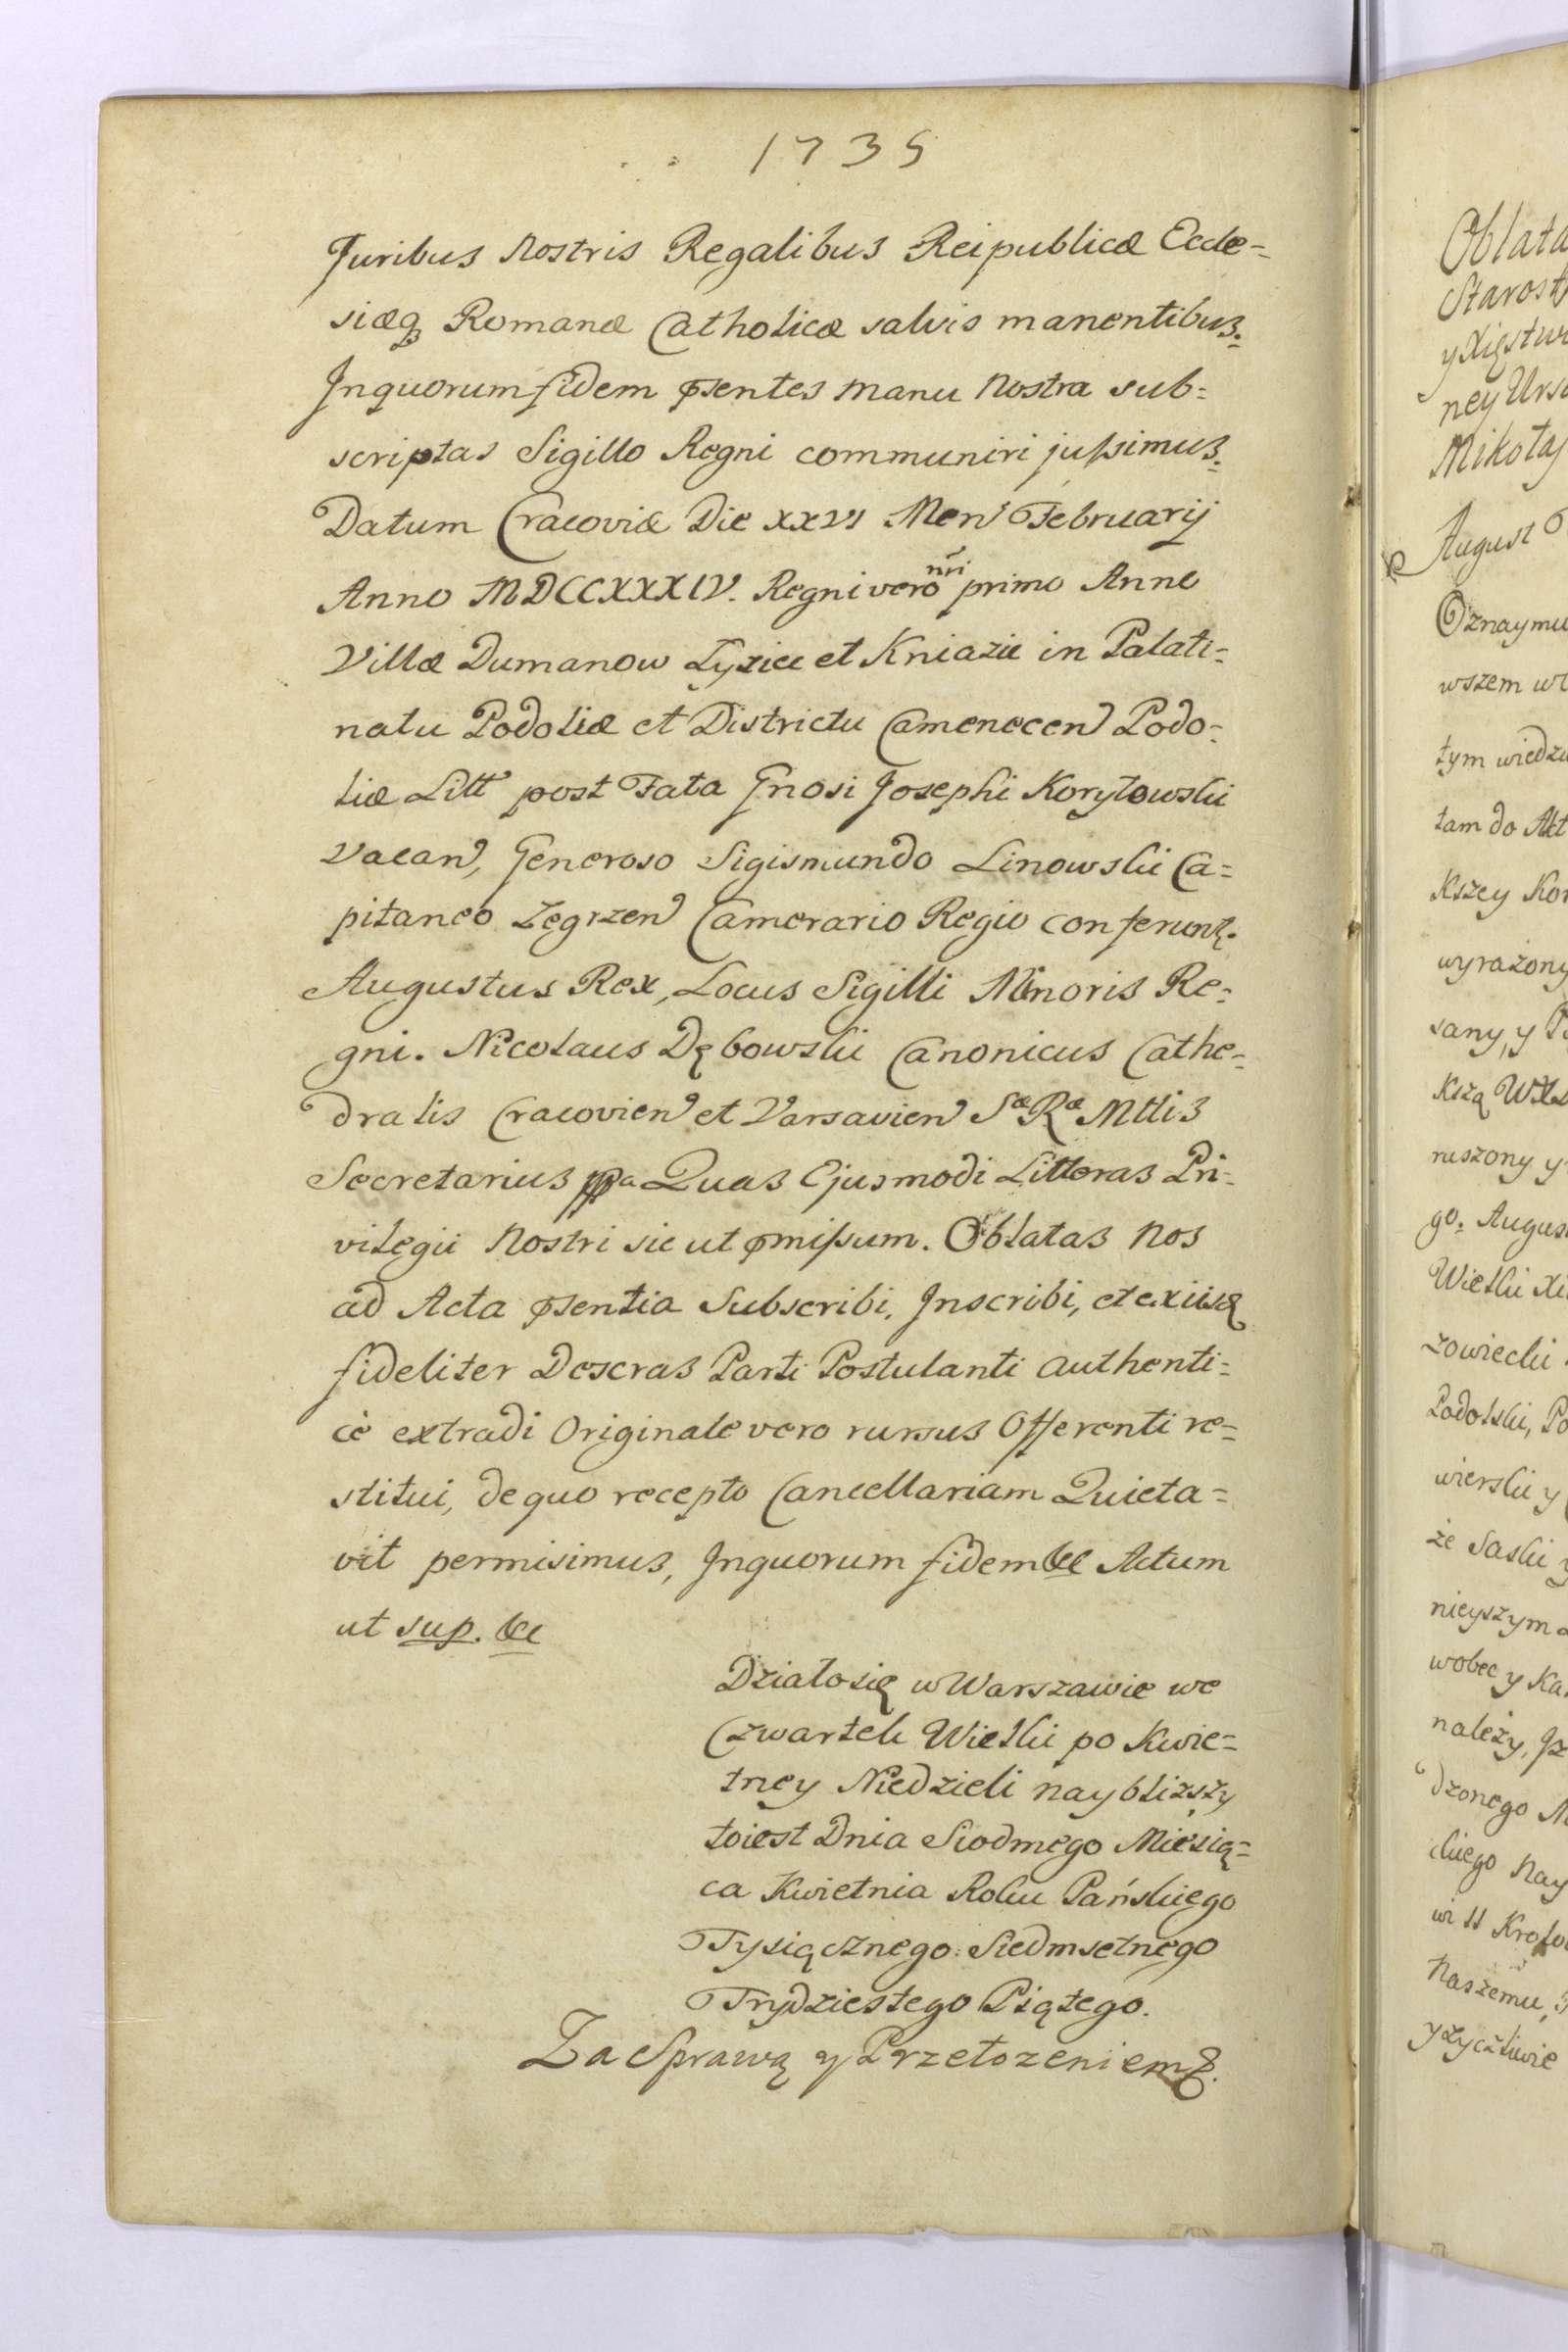 1735
Juribus Nostris Regalibus Reipublicæ Eccle=
siæq3 Romanæ Catholicæ salvis manentibus.
Inquorum fidem pſentes manu Nostra sub=
scriptas Sigillo Regni communiri jußimus.
Datum Cracoviæ Die XXVI Men Februarij
Anno MDCCXXXIV. Regni vero nri primo Anno
Villæ Dumanow Łyzice et Kniazie in Palati=
natu Podoliæ et Districtu Camenecen Podo=
liæ Litt post Fata Gnosi Josephi Korytowski
Vacan, Generoso Sigismundo Linowski Ca=
pitaneo Zegrzen Camerario Regio conferunt.
Augustus Rex, Locus Sigilli Minoris Re=
gni. Nicolaus Dębowski Canonicus Cathe=
dralis Cracovien et Varsavien Sæ Ræ Mttis
Secretarius mppa Quas Ejusmodi Litteras Pri=
vilegii Nostri sic ut pmißum. Oblatas Nos
ad Acta pſentia Subscribi, Inscribi, et exiisq
fideliter Descras Parti Postulanti authenti=
cè extradi Originale vero rursus Offerenti re=
stitui, de quo recepto Cancellariam Quieta=
vit permisimus, Inquorum fidem &c Actum
ut sup. &c
Działosię w Warszawie we
Czwartek Wielki po Kwie=
tney Niedzieli naybliższy
toiest Dnia Siodmego Miesią=
ca Kwietnia Roku Pańskiego
Tysiącznego Siedmsetnego
Trydziestego Piątego.
Za Sprawą y Przełozeniem &.
Oblata
Starost
y Xięstw
ney Urs
Mikołaj
August
Oznaymu
wszem w
tym wiedz
tam do Akt
Kszey Kor
wyrażony
sany, y
Kszą WXL
ruszony y
go. Augus
Wielki Xi
zowiecki
Podolski, Po
wierski y
że Saski y
nieyszym
wobec y Ka
należy, Iz
dzonego
ckiego Nay
wi Krolo
Naszemu,
y życzliwie